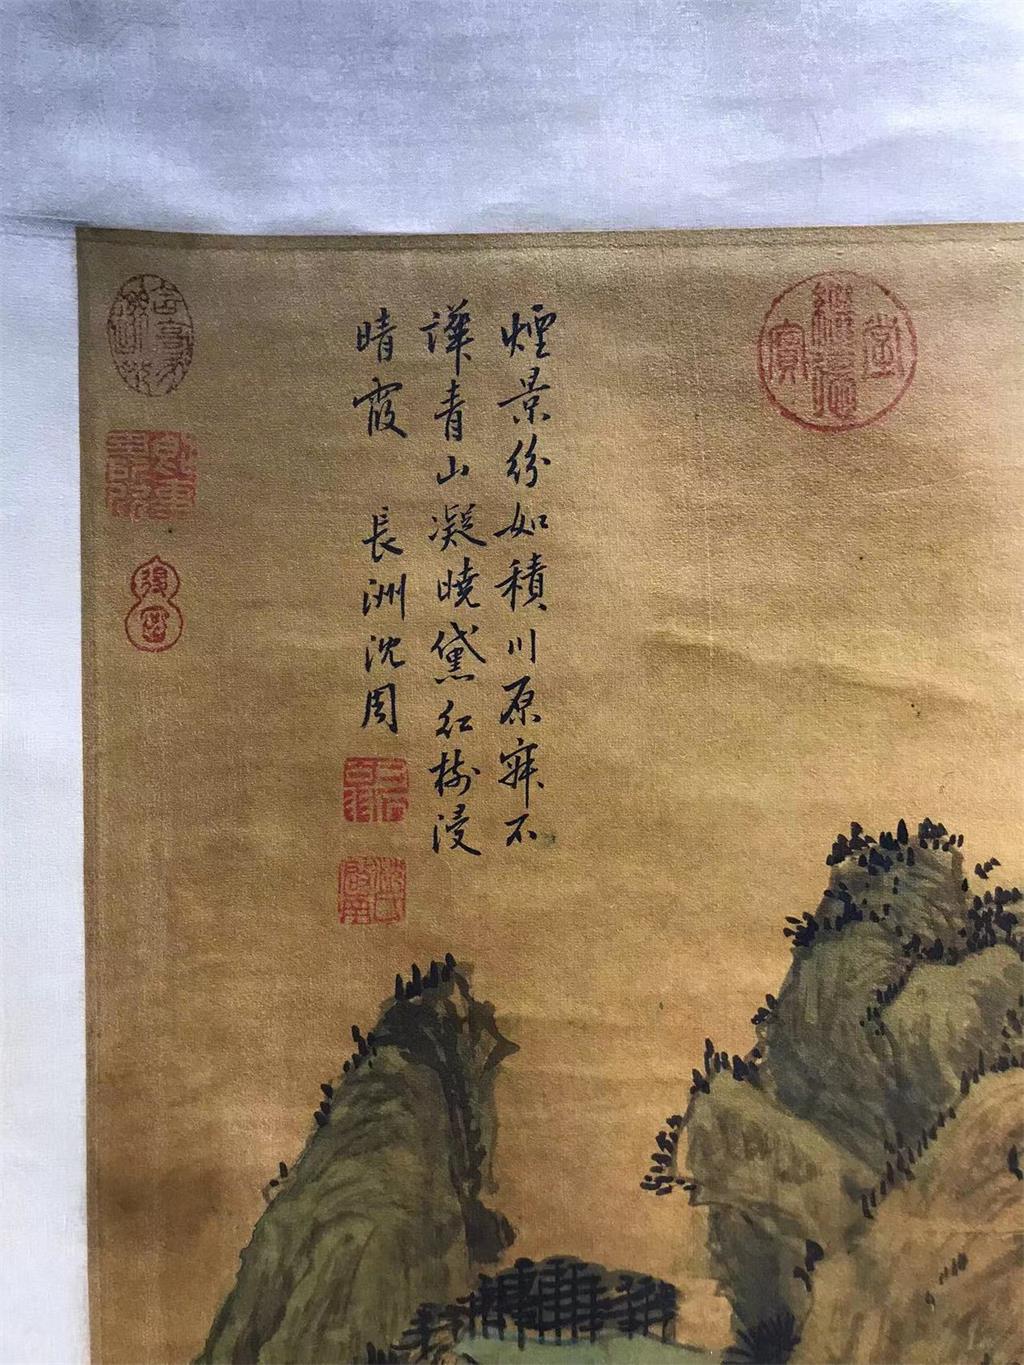 煙景紛如積川原寐不
譁青山凝曉黛紅樹浸
晴霞 長洲沈周